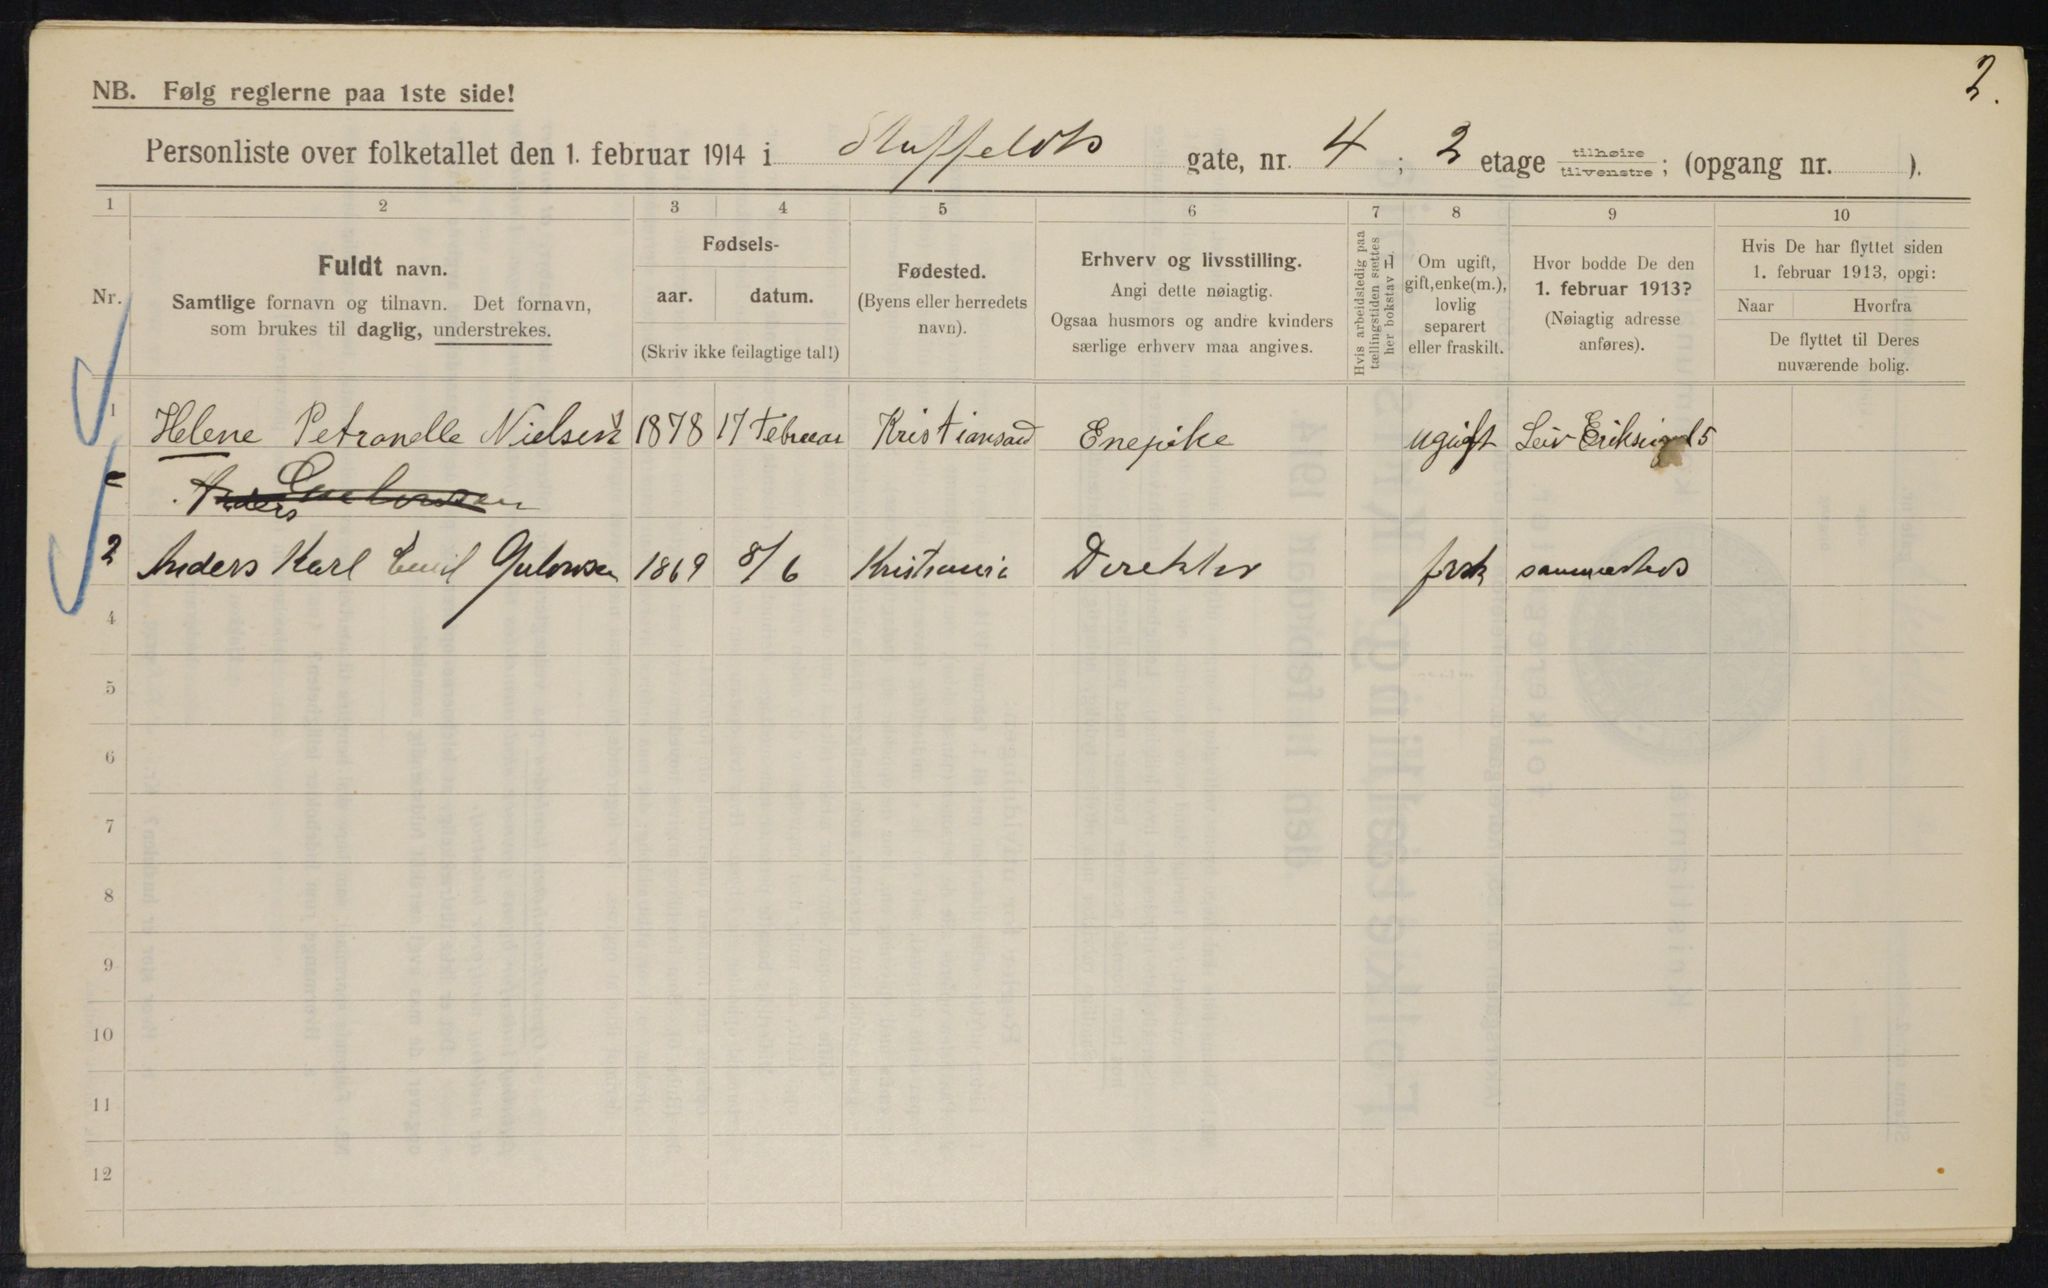 2.
NB. Følg reglerne paa 1ste side!
Personliste over folketallet den 1. februar 1914 i Stuffeldts gate, nr. 4; 2 etage tilhøire/tilvenstre; (opgang nr. ).
1 2 3 4 5 6 7 8 9 10
Nr.
Fuldt navn.
Samtlige fornavn og tilnavn. Det fornavn,
som brukes til daglig, understrekes.
Fødsels-
aar. datum.
(Skriv ikke feilagtige tal!)
Fødested.
(Byens eller herredets
navn).
Erhverv og livsstilling.
Angi dette nøiagtig.
Ogsaa husmors og andre kvinders
særlige erhverv maa angives.
Hvis arbeidsledig paa
tællingstiden sættes
her bokstav L
Om ugift,
gift, enke(m.),
lovlig
separert
eller fraskilt.
Hvor bodde De den
1. februar 1913?
(Nøiagtig adresse
anføres).
Hvis De har flyttet siden
1. februar 1913, opgi:
Naar Hvorfra
De flyttet til Deres
nuværende bolig.
1 Helene Petronelle Nielsen 1878 17 Februar Kristiansand Enepike ugift Leiv Eriksg 15
Anders
2 Anders Karl Emil Gulowsen 1869 8/6 Kristiania Direktør frsk sammesteds
4
5
6
7
8
9
10
11
12